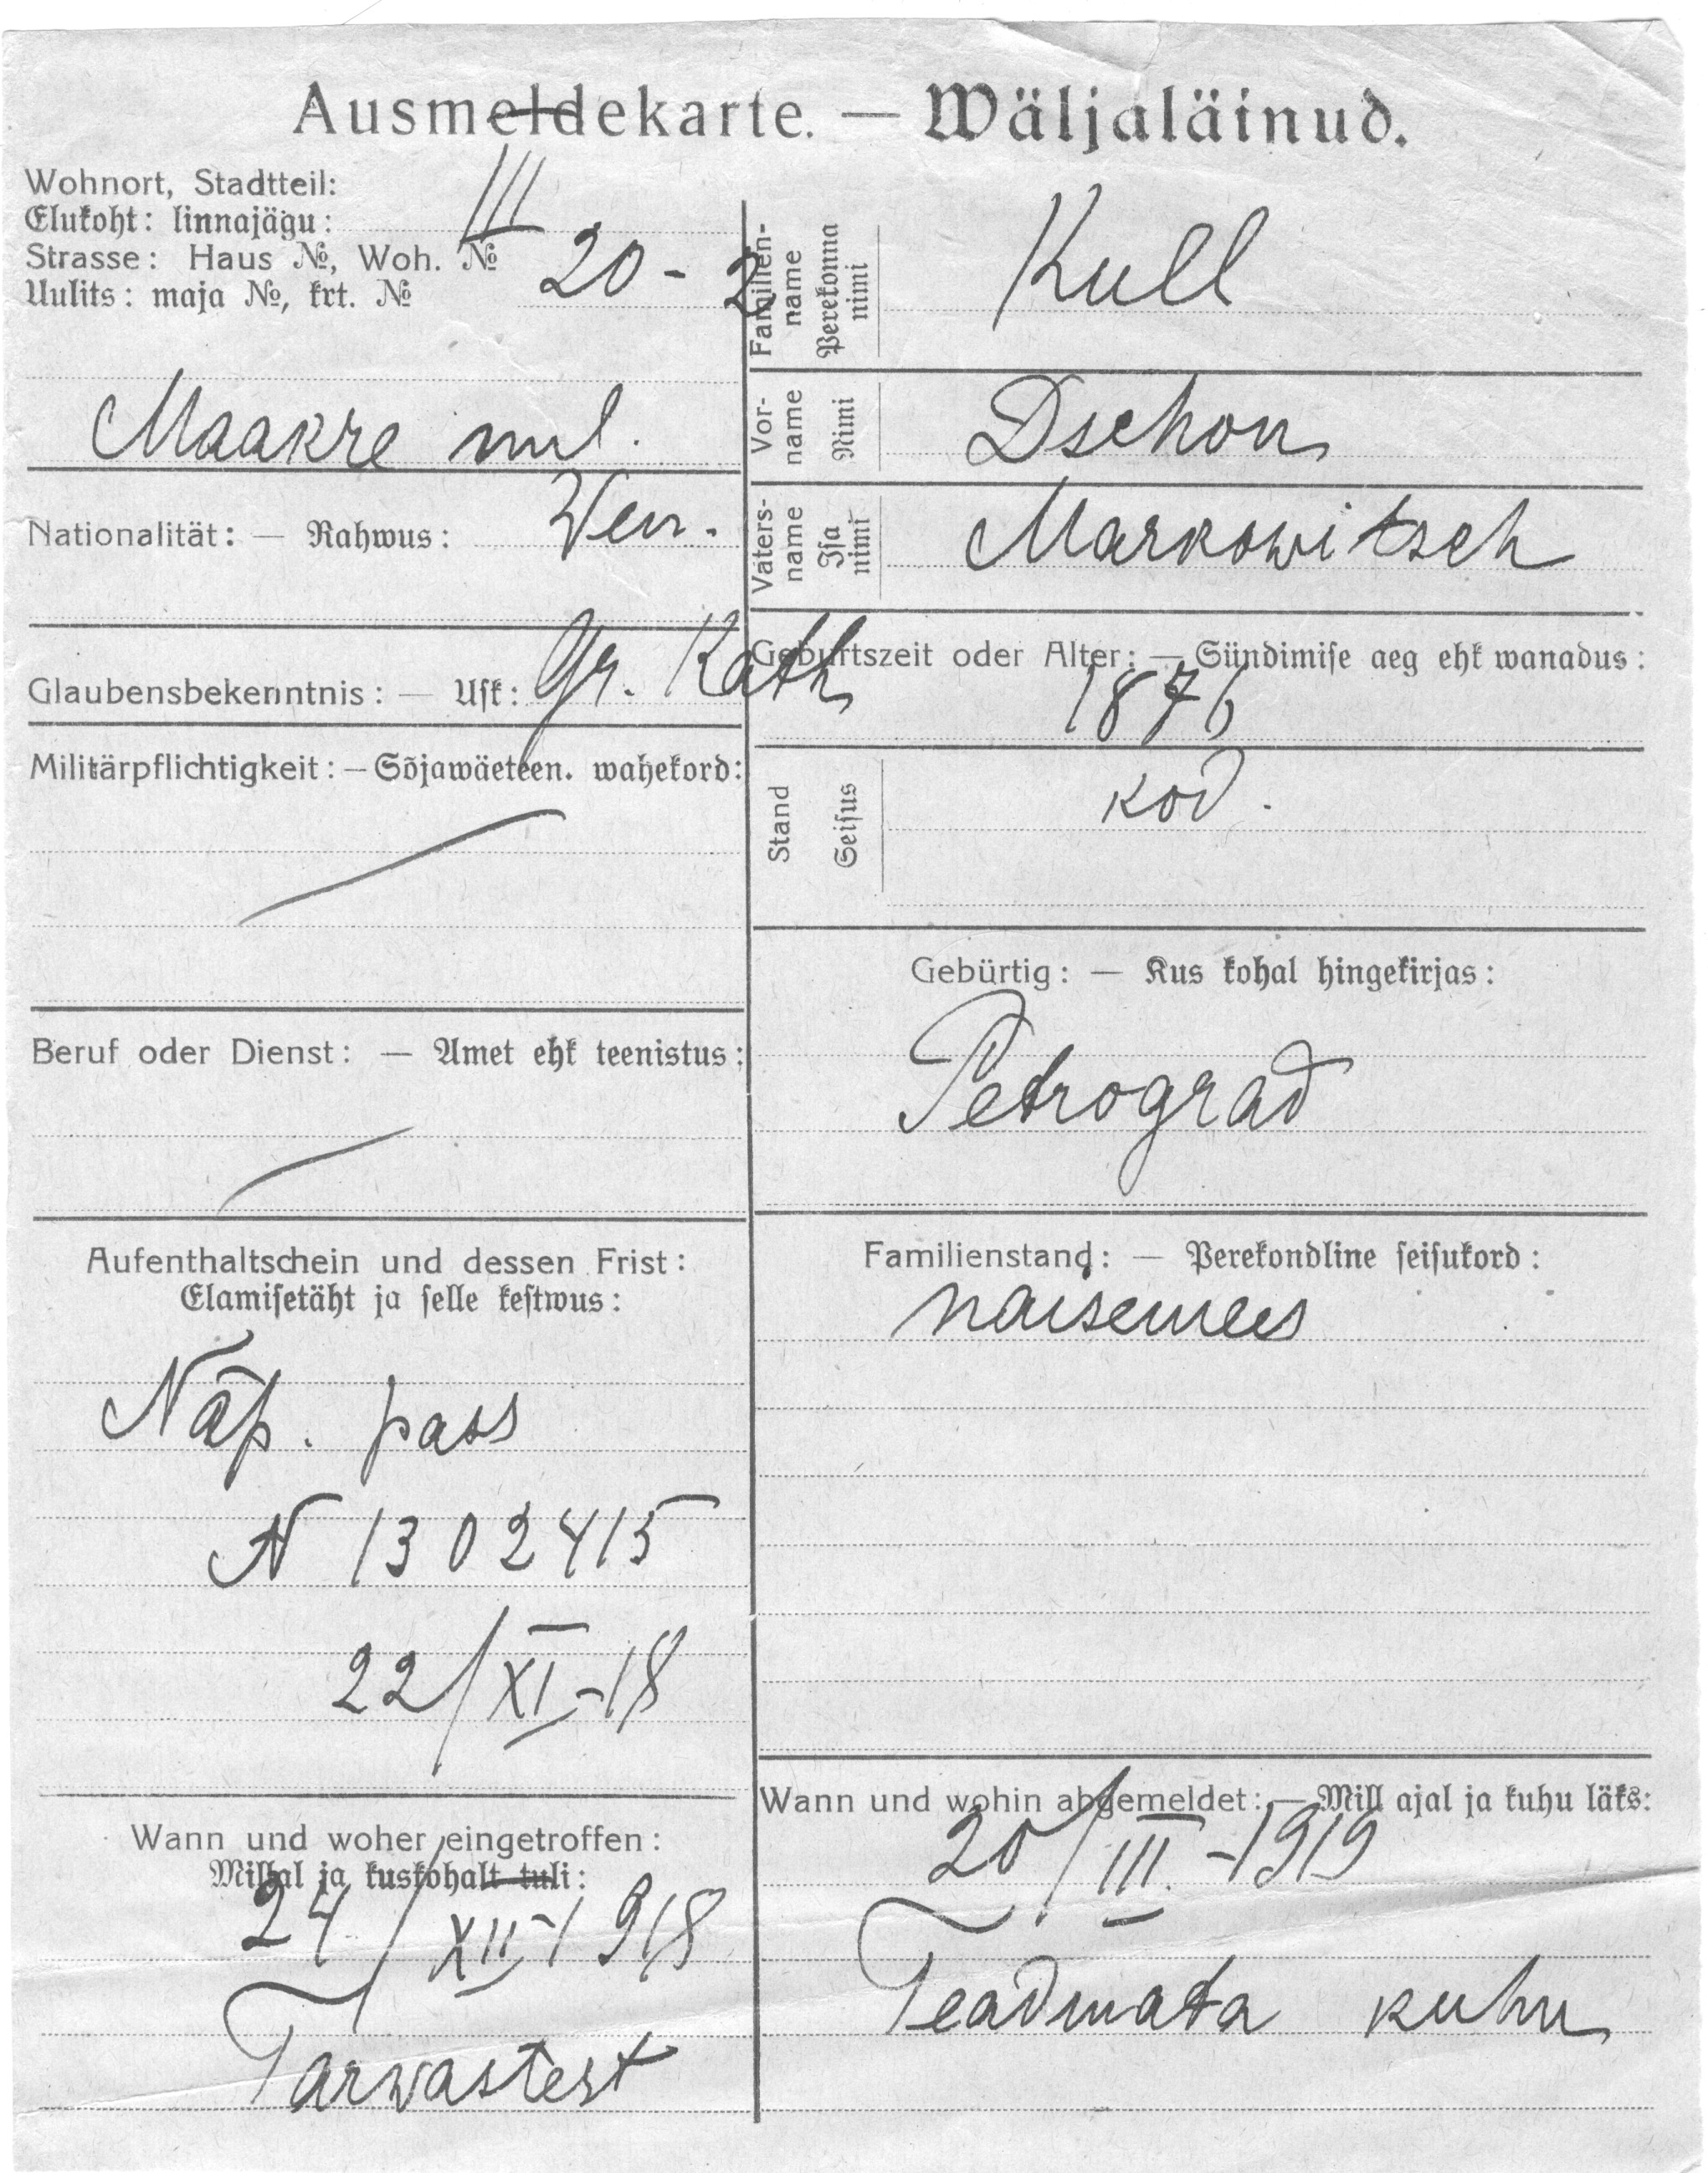 Ausmeldekarte. — Wäljaläinud.
Wohnort, Stadtteil:
Elukoht: linnajägu: III
Strasse: Haus №, Woh. №
Uulits: maja №, krt. № 20 - 2
Maakre uul.
Nationalität: — Rahwus: Wen.
Glaubensbekenntnis: — Usk: Gr. Kath
Militärpflichtigkeit: — Sõjawäeteen. wahekord:
Beruf oder Dienst: — Amet ehk teenistus:
Aufenthaltschein und dessen Frist:
Elamisetäht ja selle kestwus:
Näp. pass
N 1302415
22/XI-18
Wann und woher eingetroffen:
Millal ja kuskohalt tuli:
24/XII-1918
Tarwastest
Familien-
name
Perekonna
nimi
Kull
Vor-
name
Nimi
Dschon
Vaters-
name
Isa
nimi
Markowitsch
Geburtszeit oder Alter: — Sündimise aeg ehk wanadus:
1876
Stand
Seisus
kod.
Gebürtig: — Kus kohal hingekirjas:
Petrograd
Familienstand: — Perekondline seisukord:
naisemees
Wann und wohin abgemeldet: — Mill ajal ja kuhu läks:
20/III-1919
Teadmata kuhu